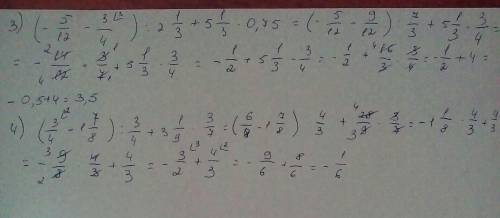 3) (-5/12 - 3/4^(3) ) : 2 1/3 + 5 1/3 · 0,75 = (-5/12 - 9/12) : 7/3 + 5 1/3 · 3/4 =
= - 14/12 · 3/7 + 5 1/3 · 3/4 = - 1/2 + 5 1/3 · 3/4 = - 1/2 + 16/3 · 3/4 = - 1/2 + 4 =
- 0,5+4 = 3,5
4) (3/4 - 1 7/8) : 3/4 + 3 1/9 · 3/7 = (6/8 - 1 7/8) · 4/3 + 28/9 · 3/7 = - 1 1/8 · 4/3 + 4/3
= - 9/8 · 4/3 + 4/3 = - 3/2 + 4/3 = - 9/6 + 8/6 = - 1/6